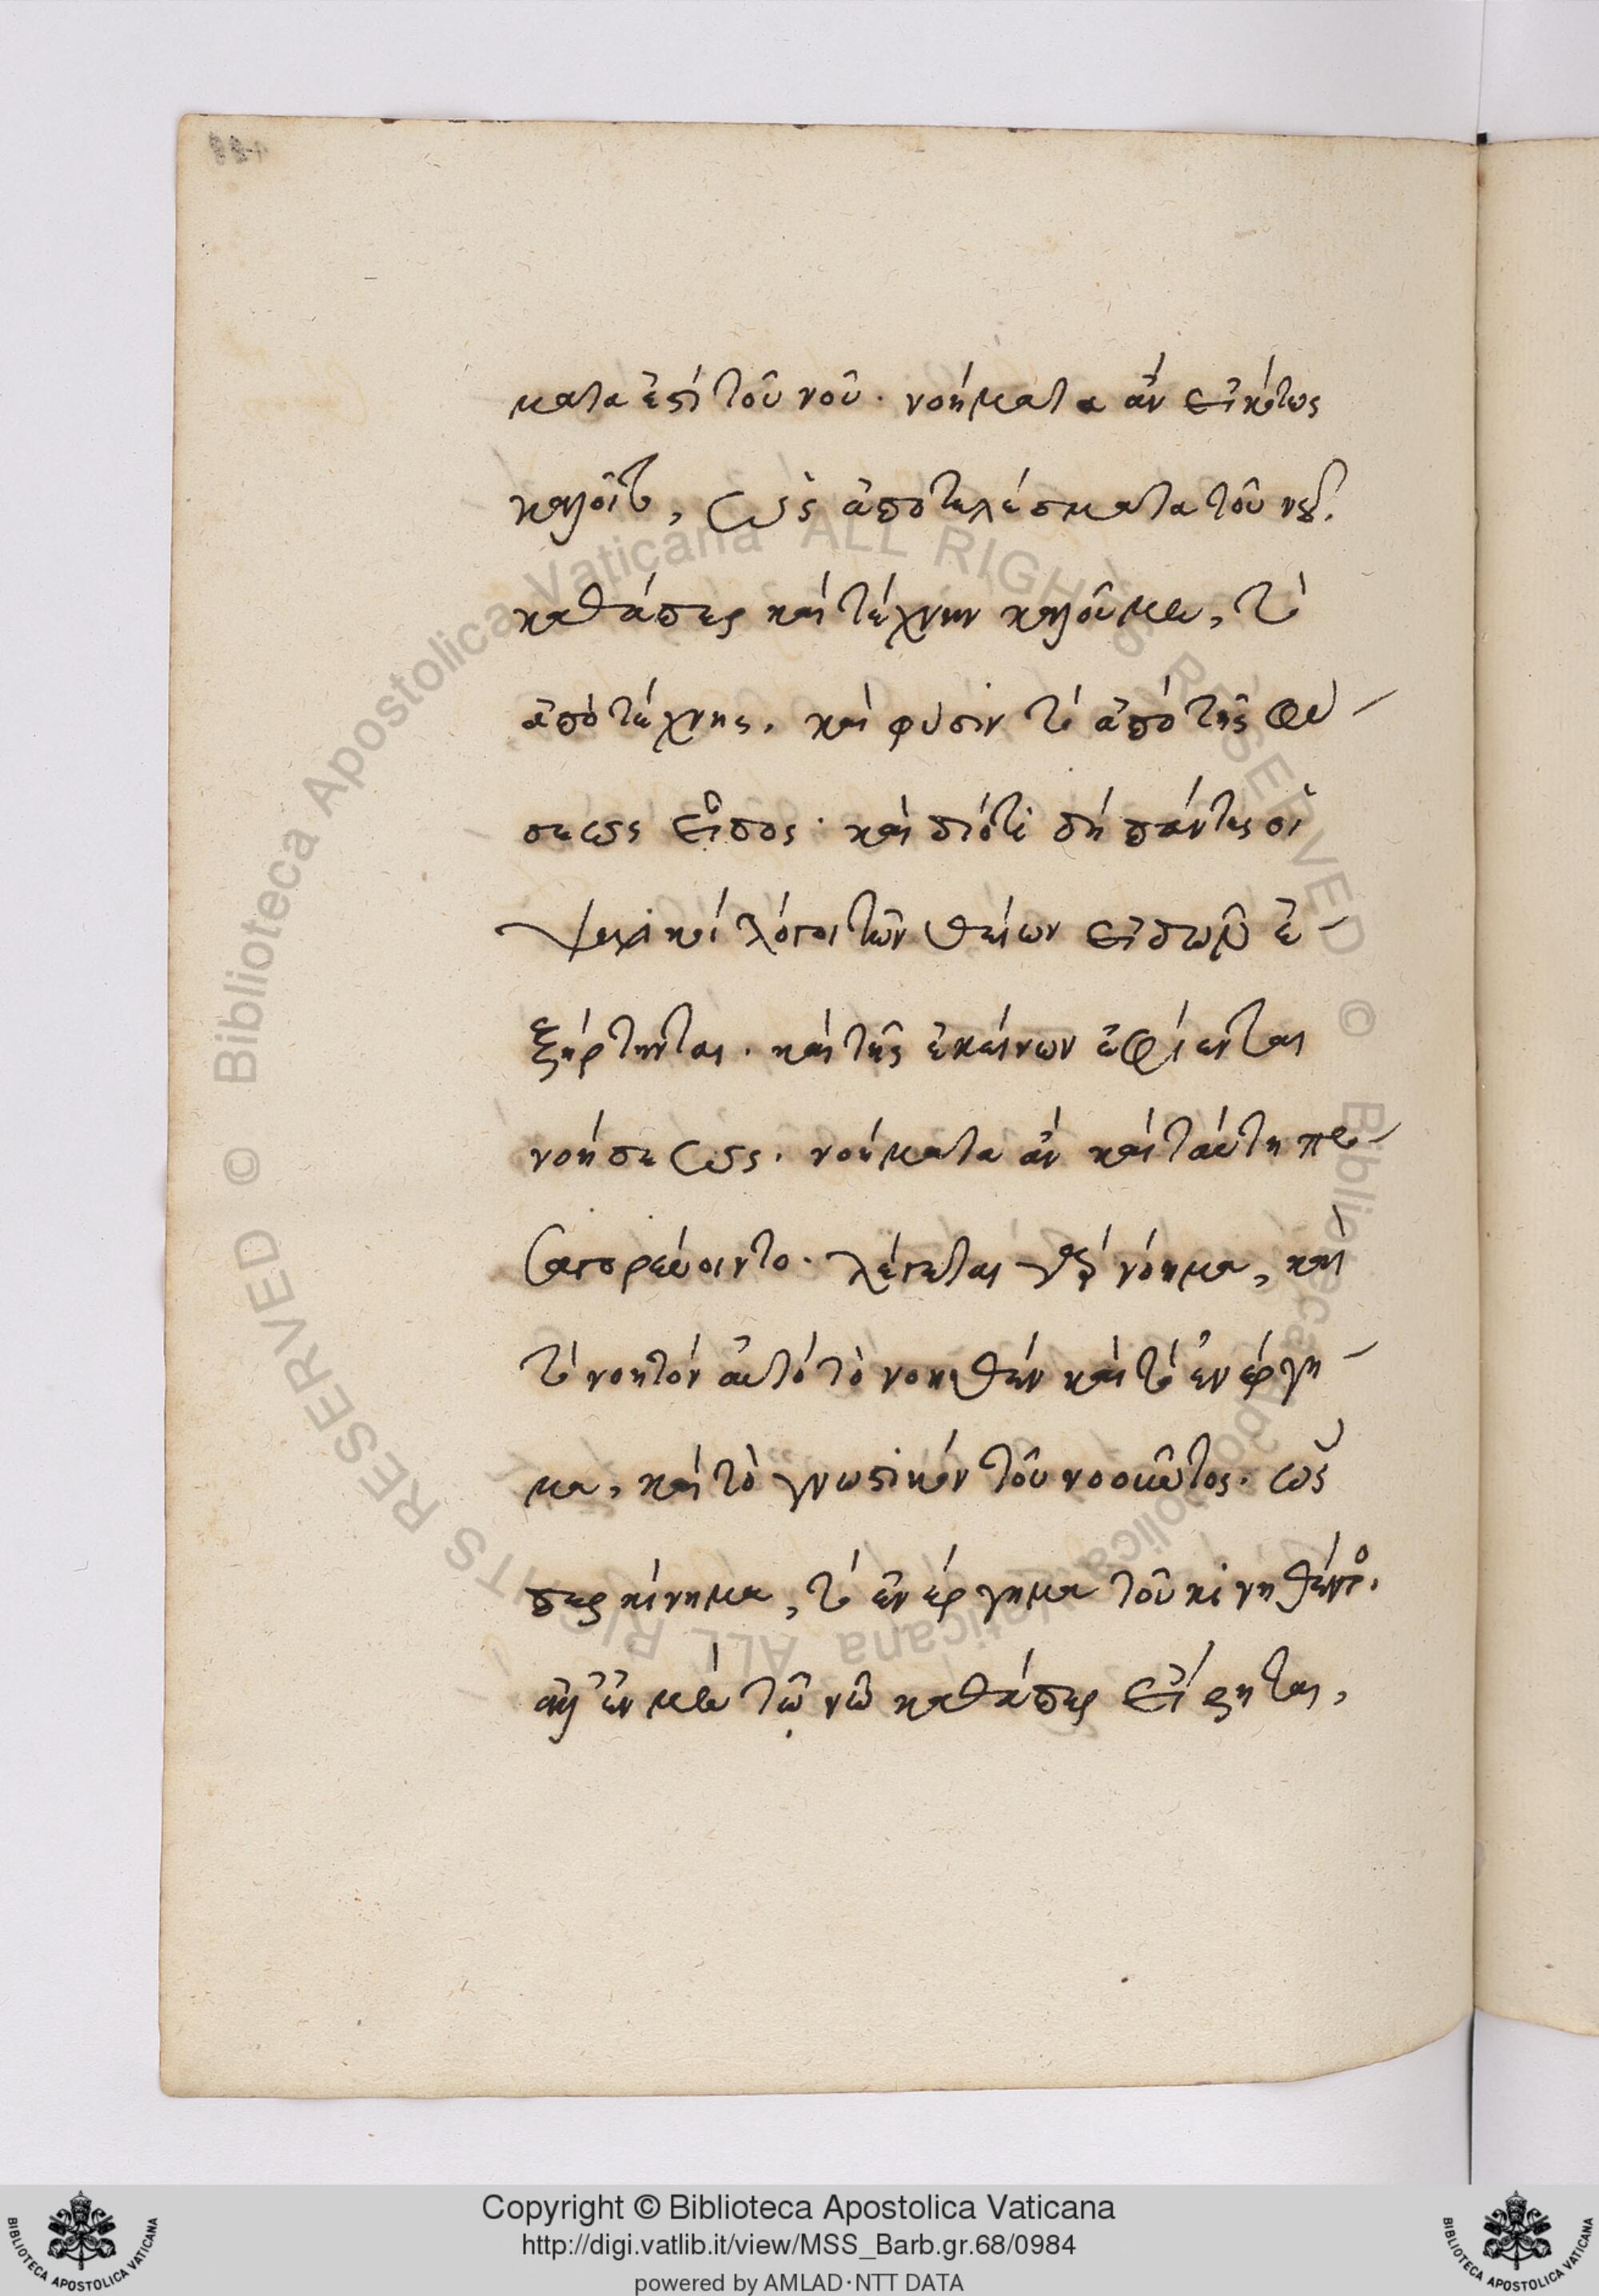 ματα ἐστὶ τοῦ νοῦ. νοήματα ἂν εἰκότως
καλοῖτο, ὡς ἀποτελέσματα τοῦ νοῦ.
καθάπερ καὶ τέχνην καλοῦμεν, τὸ
ἀπὸ τέχνης. καὶ φύσιν τὸ ἀπὸ τῆς φύ-
σεως εἶδος. καὶ διότι δὴ πάντες οἱ
ψυχικοὶ λόγοι τῶν θείων εἰδῶν ἐ-
ξήρτηνται. καὶ τῆς ἐκείνων ἐφίενται
νοήσεως. νοήματα ἂν καὶ ταύτῃ προ-
σαγορεύοιντο. λέγεται γὰρ νόημα, καὶ
τὸ νοητὸν αὐτὸ τὸ νοηθὲν καὶ τὸ ἐνέργη-
μα, καὶ τὸ γνωστικὸν τοῦ νοοῦντος. ὡς
περ κίνημα, τὸ ἐνέργημα τοῦ κινηθέντος.
ἀλλ' ἐν μὲν τῷ νῷ καθάπερ εἴρηται,
Copyright © Biblioteca Apostolica Vaticana
http://digi.vatlib.it/view/MSS_Barb.gr.68/0984
powered by AMLAD·NTT DATA
© Biblioteca Apostolica Vaticana ALL RIGHTS RESERVED © Biblioteca Apostolica Vaticana ALL RIGHTS RESERVED
BIBLIOTECA APOSTOLICA VATICANA
BIBLIOTECA APOSTOLICA VATICANA